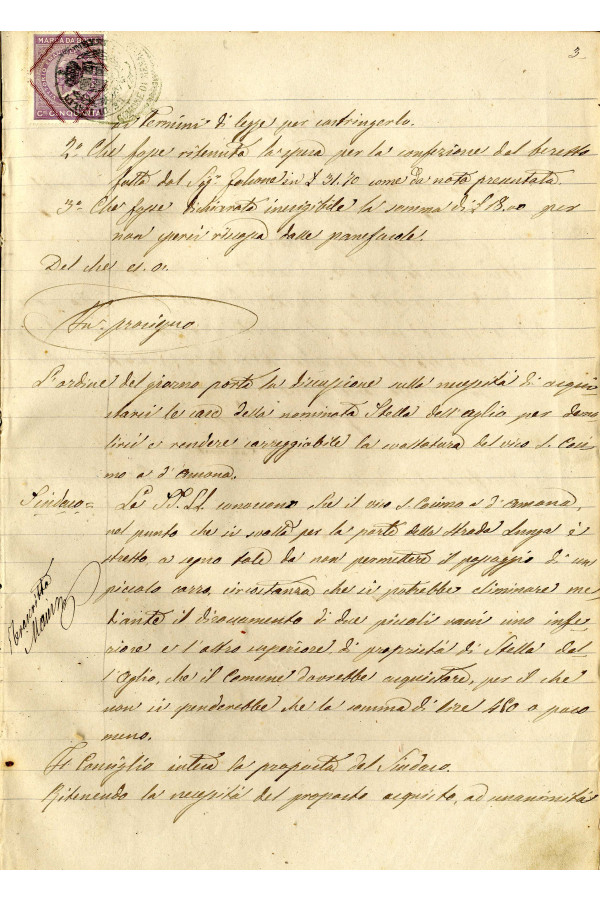 3
MARCA DA BOLLO
CMI CINQUANTA
ai termini di legge per costringerlo.
2º Che fosse ritenuta la spesa per la confezione del berretto
fatta dal Sigr Falcone in £ 31.70 come da nota presentata.
3º Che fosse dichiarata inesigibile la somma di £ 18.00 per
non essersi riscossa dalle
Del che es. o.
In prosieguo
L'ordine del giorno porta la discussione sulla necessità di acqui
starsi le case della nominata Stella dell'Aglio per demo
lirsi e rendere carreggiabile la svoltatura del vico S. Cosi
mo a d'Amona.
Sindaco =
Le SS. LL. conoscono che il vico S. Cosimo a d'Amona,
nel punto che si svolta per la parte della strada Lunga è
stretto, a segno tale da non permettere il passaggio di un
piccolo carro, circostanza che si potrebbe eliminare me
diante il diroccamento di due piccoli vani uno infe
riore e l'altro superiore di proprietà di Stella del
l'Oglio, che il Comune dovrebbe acquistare, per il che
non si spenderebbe che la somma di lire 480 o poco
meno.
Il Consiglio intesa la proposta del Sindaco.
Ritenendo la necessità del proposto acquisto, ad unanimità